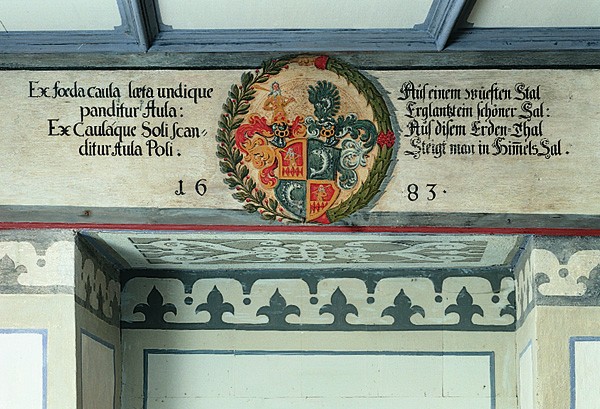 Ex fœda caula læta undique
panditur Aula:
Ex Caulaque Soli scan-
ditur Aula Poli.
Auß einem wüesten Stal
Erglantzt ein schöner Sal:
Auß disem Erden-Thal
Steigt man in Him̄els Sal.
1683.